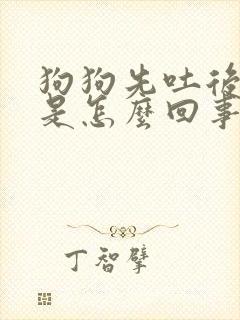 狗狗先吐後
是怎麼回事
丁智擘